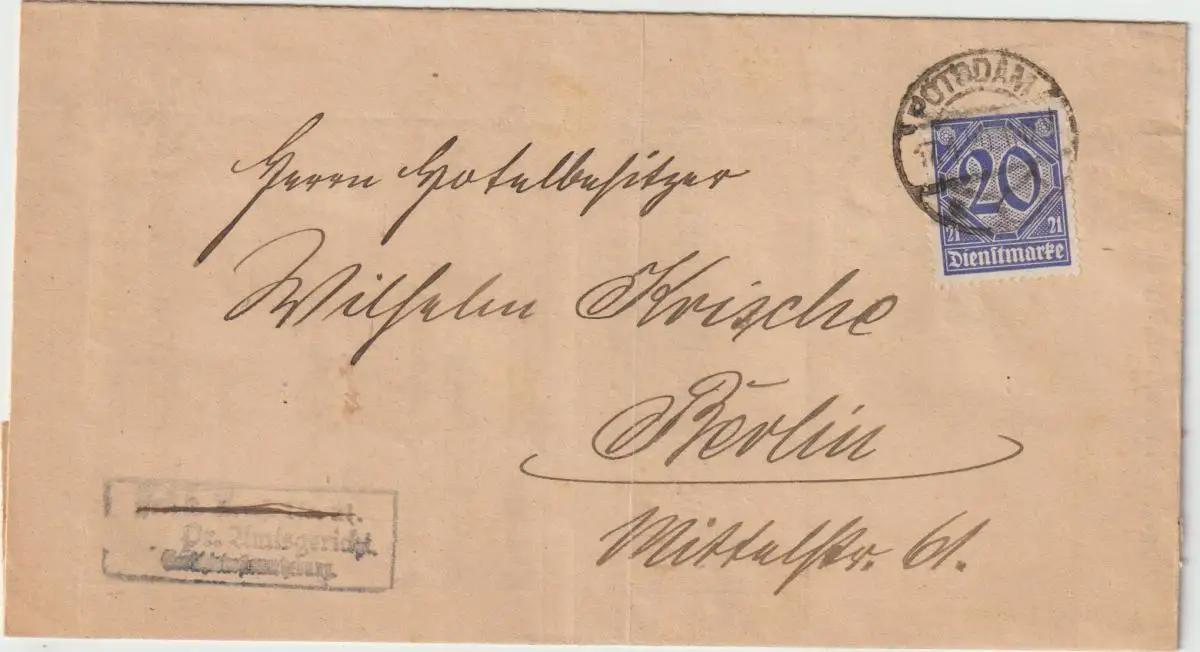 POTSDAM
20
21 21
Dienstmarke
Herrn Hotelbesitzer
Wilhelm Krische
Berlin
Mittelstr. 61.
Pr. Amtsgericht.